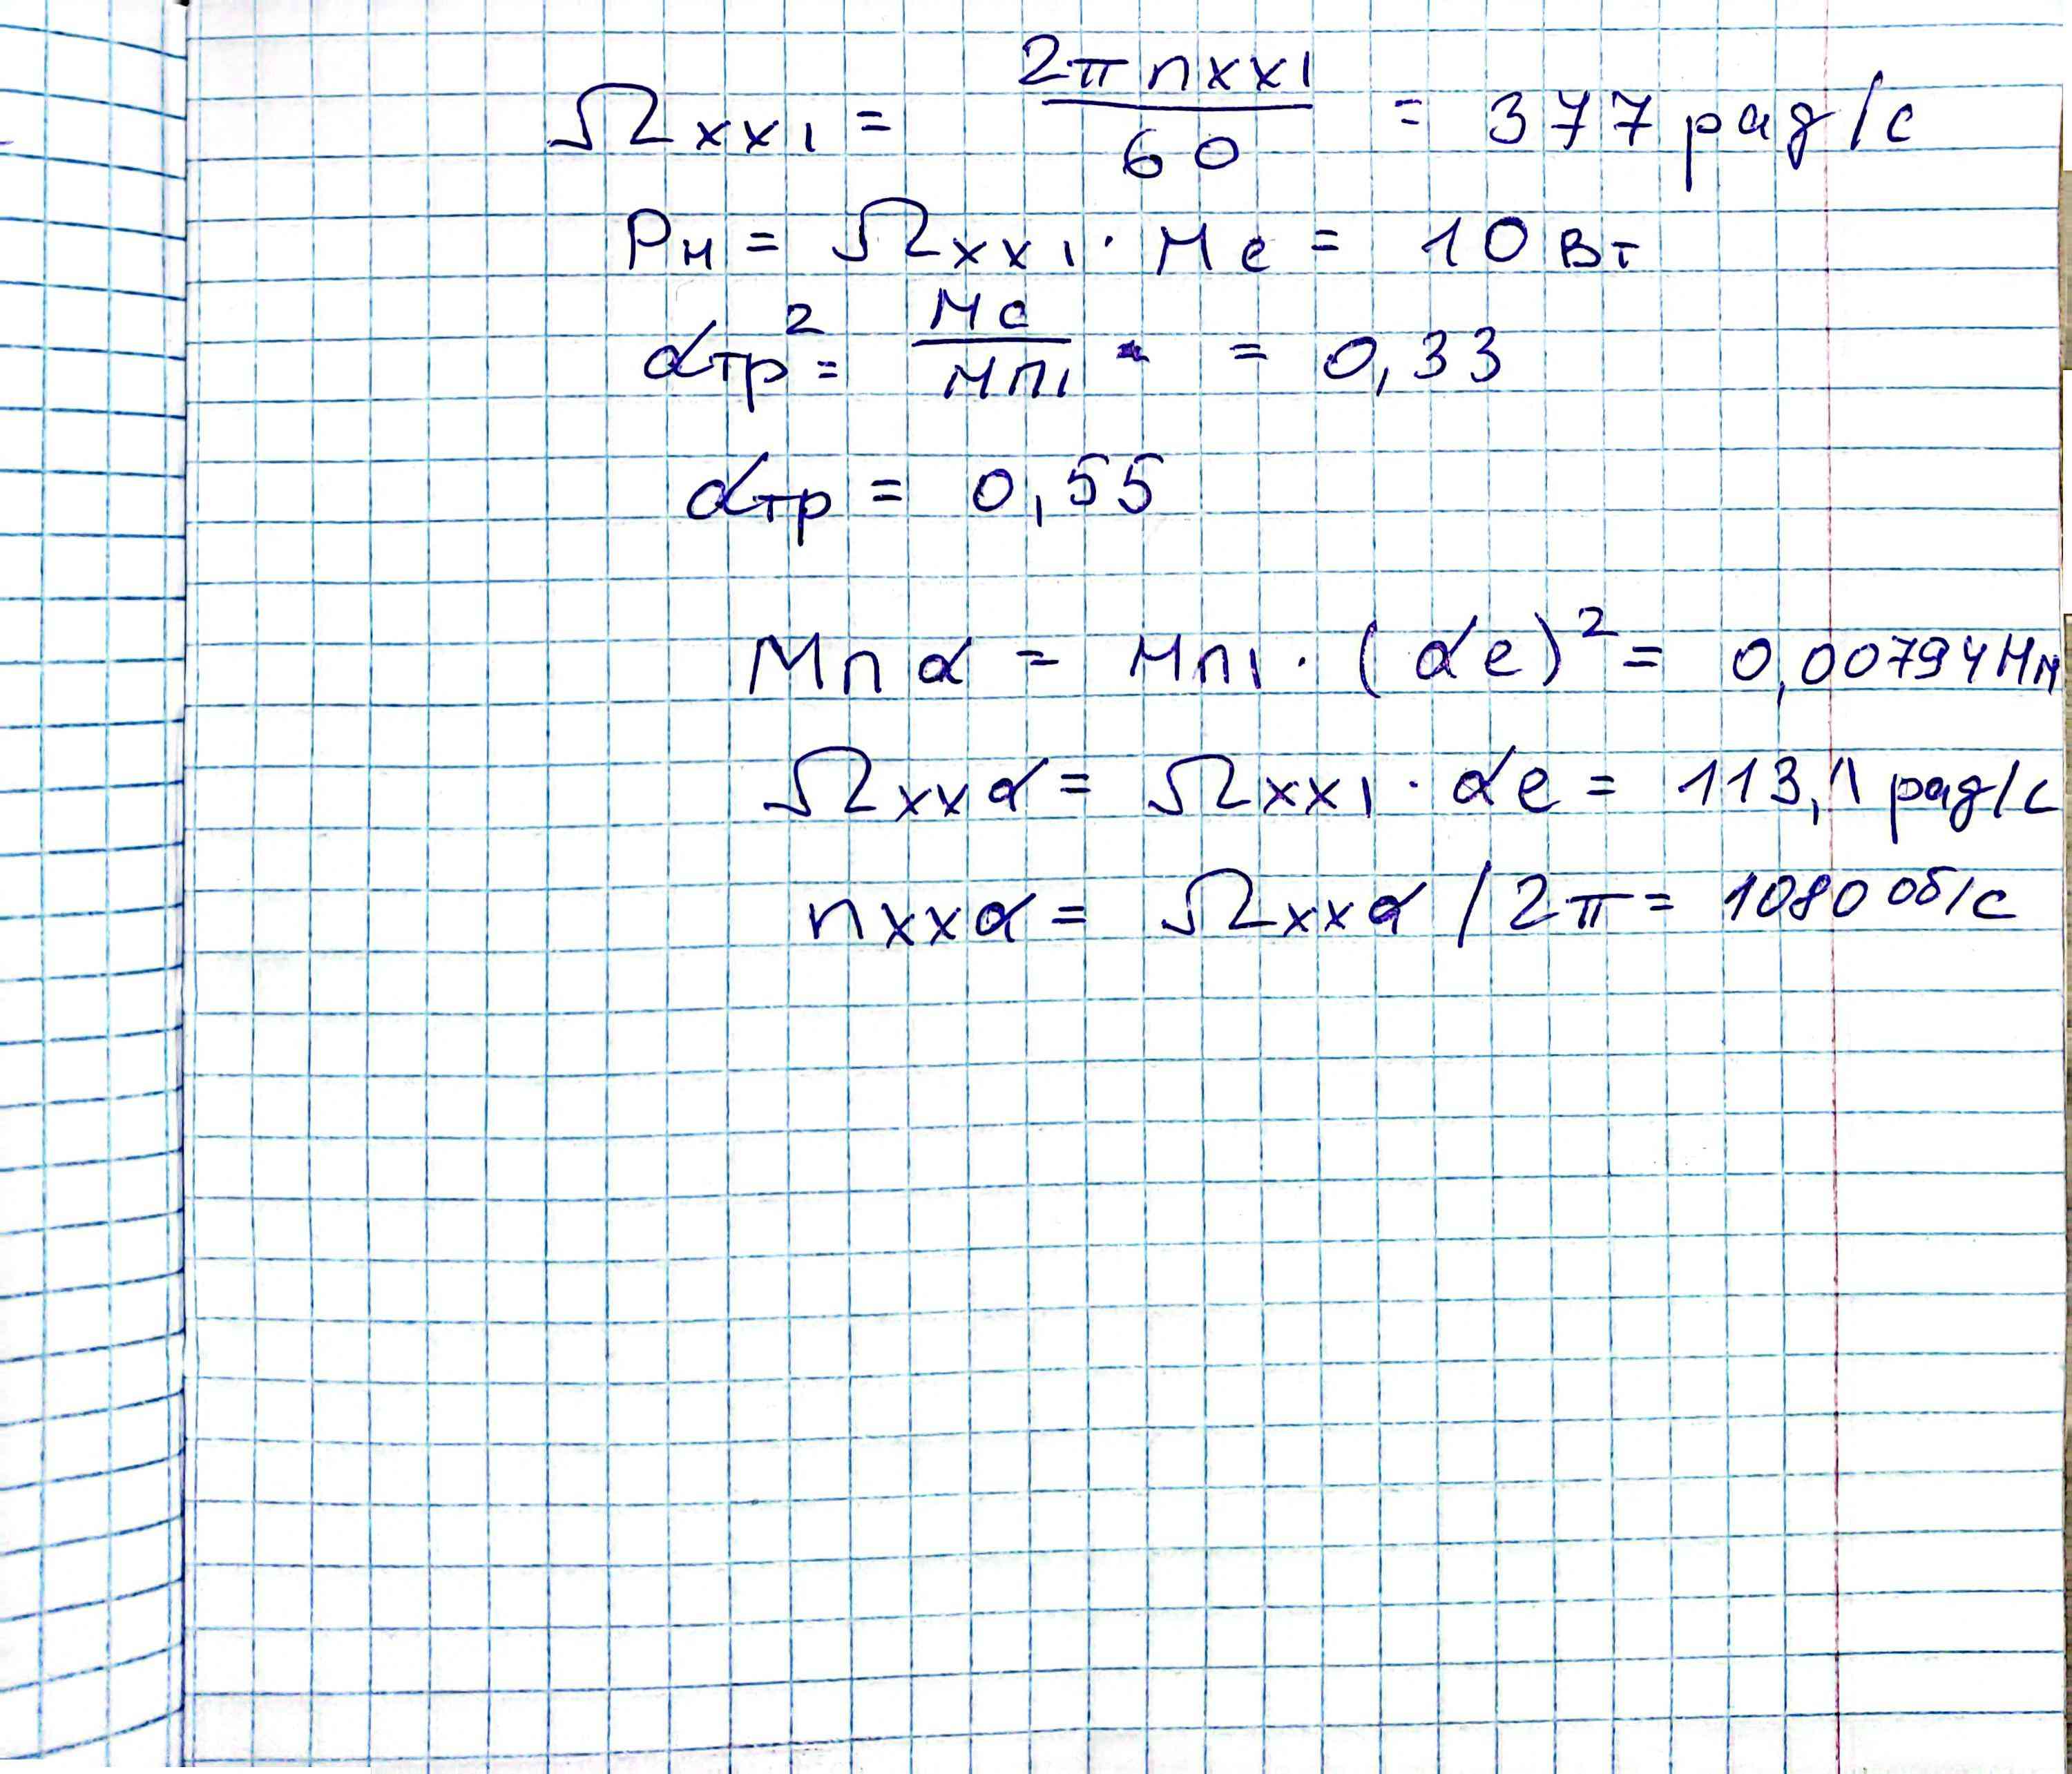 Ωxx1 = 2πnxx1 / 60 = 377 рад/с
Pн = Ωxx1 · Mc = 10 Вт
αтр² = Mc / Mп1 = 0,33
αтр = 0,55
Mпα = Mп1 · (αe)² = 0,00794 Нм
Ωxxα = Ωxx1 · αe = 113,1 рад/с
nxxα = Ωxxα / 2π = 1080 об/с